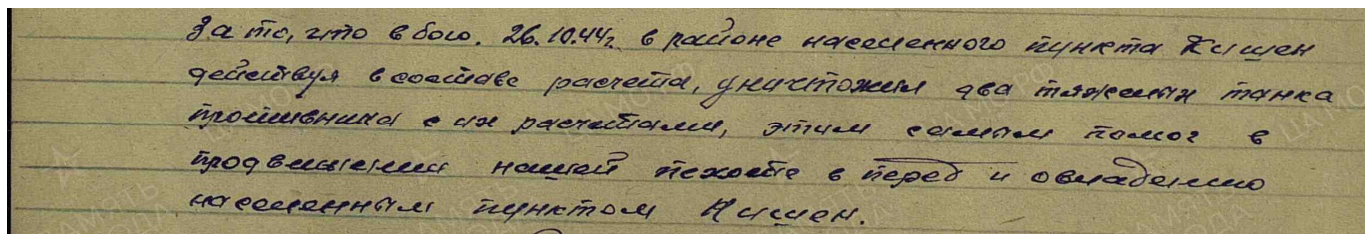 За то, что в бою. 26.10.44г. в районе населенного пункта Кишен
действуя в составе расчета, уничтожил два тяжелых танка
противника с их расчетами, этим самым помог в
продвижении нашей пехоте в перед и овладению
населенным пунктом Кишен.